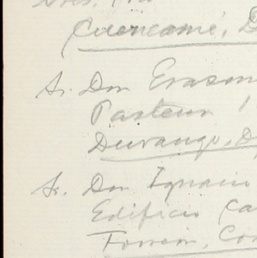 Cuencamé, D
Sr. Don Erasm
Pasteur 1
Durango, D
Sr. Don Ignacio
Edificio Ca
Torreon, Coa